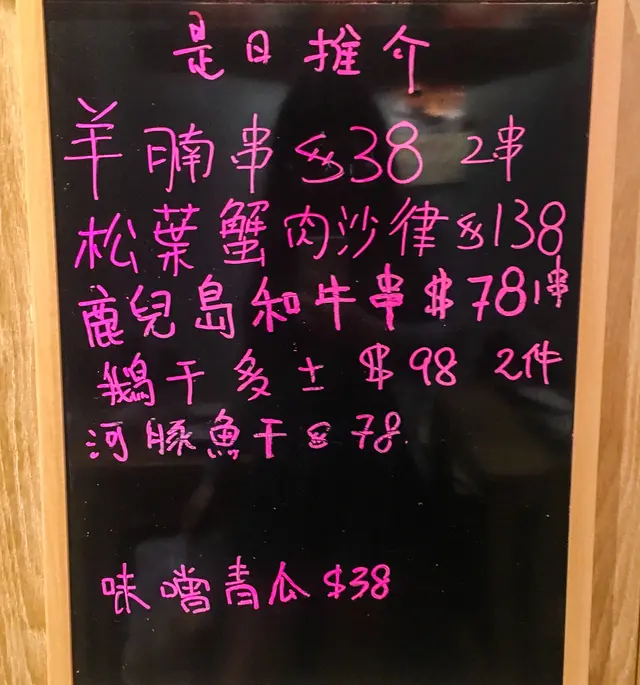 是日推介
羊腩串 $38 2串
松葉蟹肉沙律 $138
鹿兒島和牛串 $78 1串
鵝干多士 $98 2件
河豚魚干 $78
味噌青瓜 $38